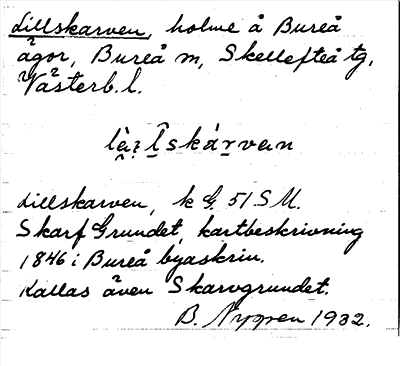 Lillskarven, holme å Bureå
ägor, Bureå sn, Skellefteå tg,
Västerb. l.
Lillskarven, k G 51 S M.
Skarf Grundet, kartbeskrivning
1846 i Bureå byaskrin.
Kallas även Skarvgrundet.
B. Nygren 1932.